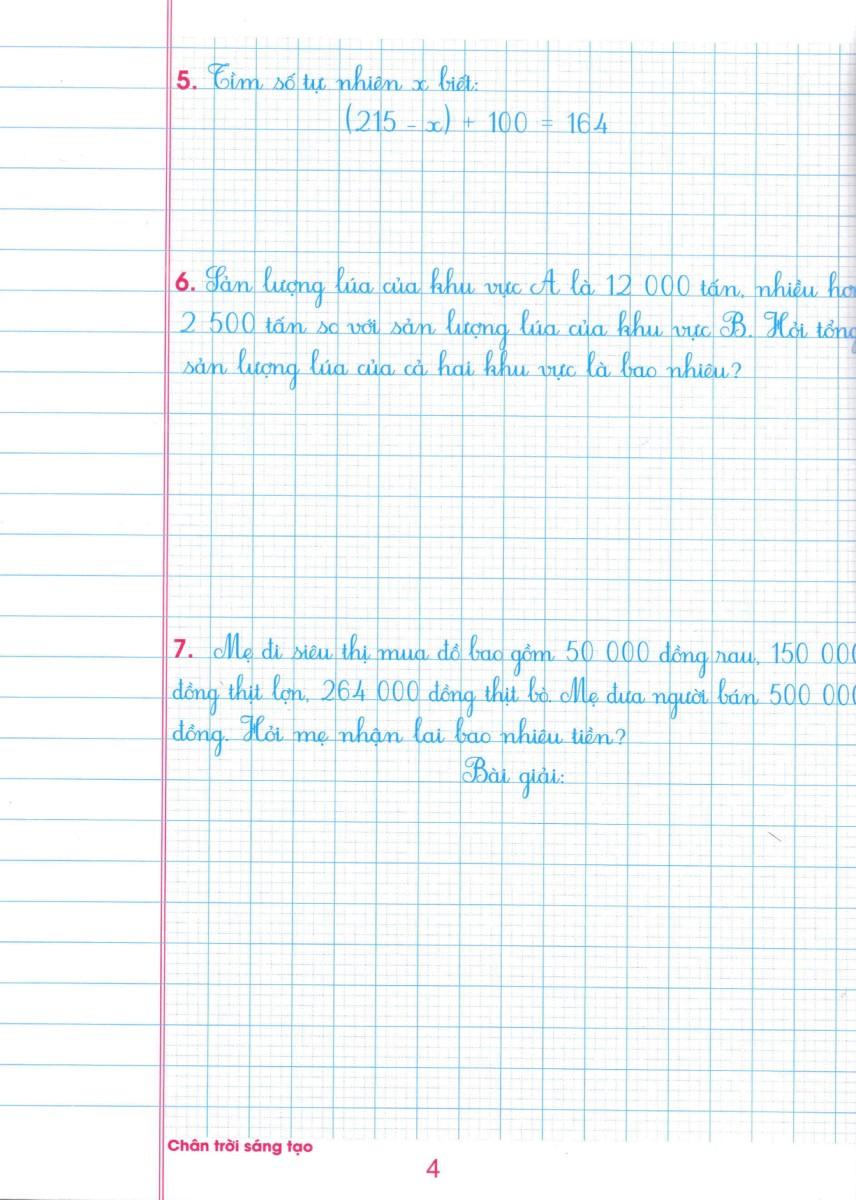 5. Tìm số tự nhiên x biết:
(215 - x) + 100 = 164
6. Sản lượng lúa của khu vực A là 12 000 tấn, nhiều hơ
2 500 tấn so với sản lượng lúa của khu vực B. Hỏi tổng
sản lượng lúa của cả hai khu vực là bao nhiêu?
7. Mẹ đi siêu thị mua đồ bao gồm 50 000 đồng rau, 150 000
đồng thịt lợn, 264 000 đồng thịt bò. Mẹ đưa người bán 500 000
đồng. Hỏi mẹ nhận lai bao nhiêu tiền?
Bài giải:
Chân trời sáng tạo
4